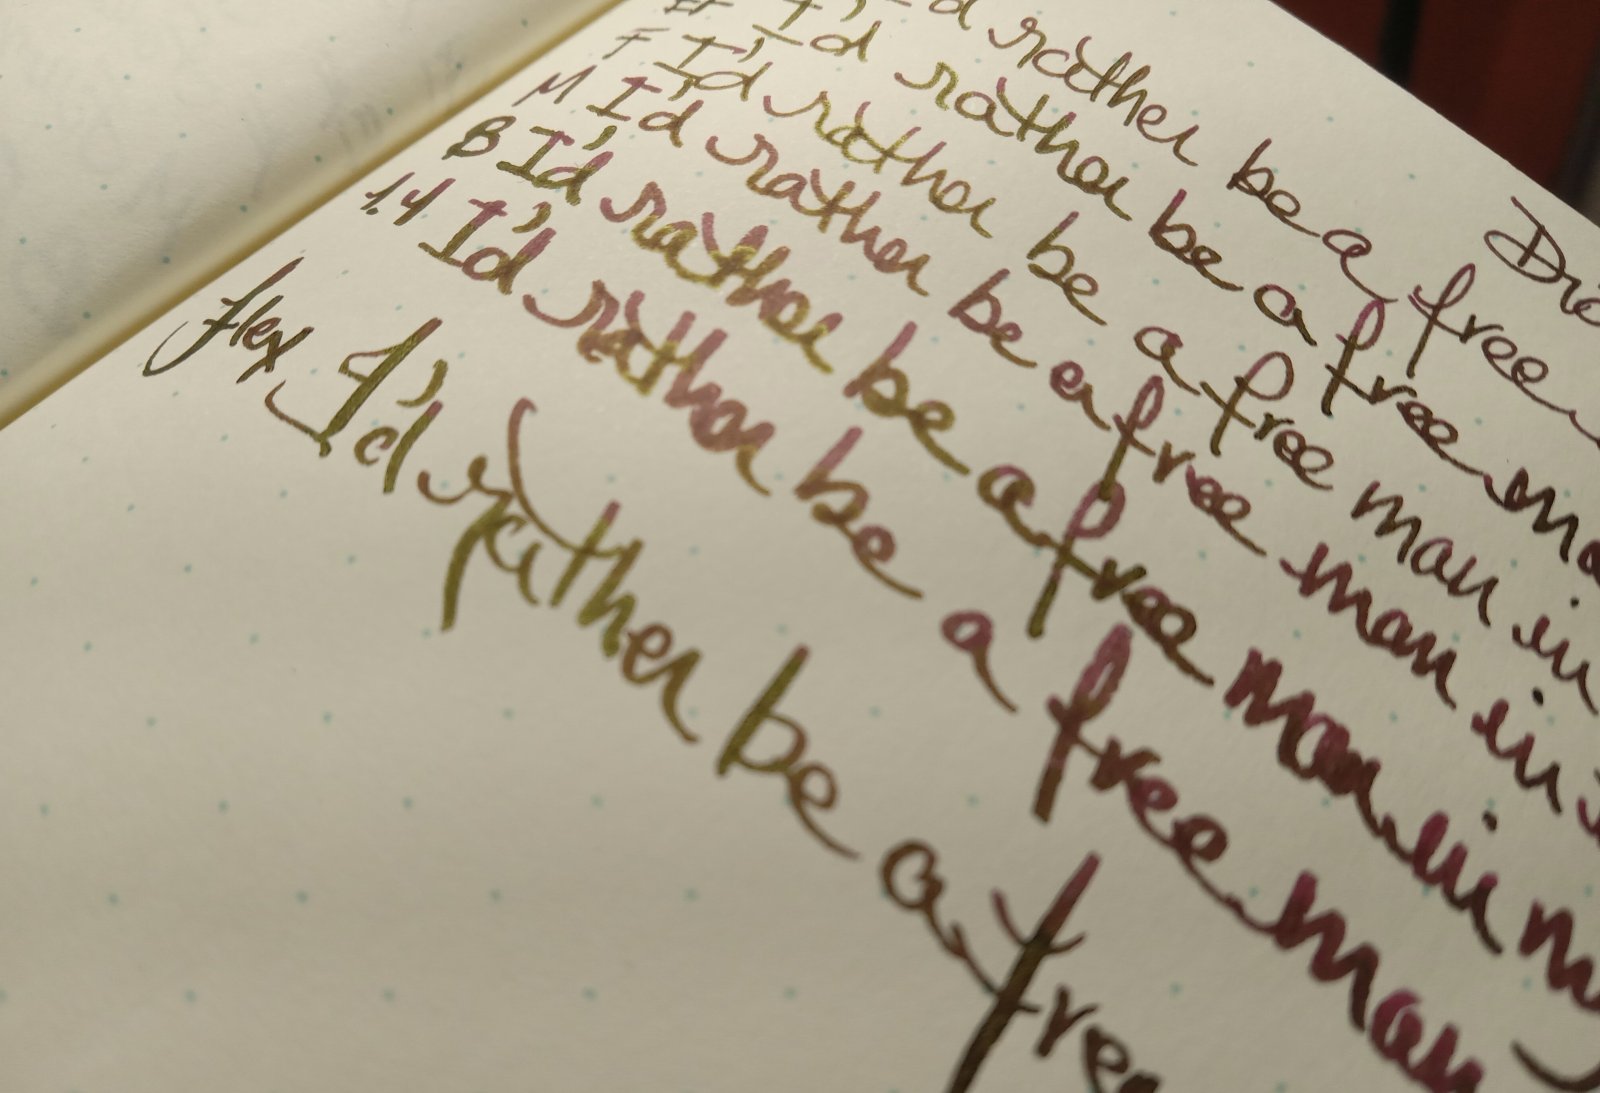 I'd rather be a free
EF I'd rather be a free ma
F I'd rather be a free man in
M I'd rather be a free man in
B I'd rather be a free man in my
1.4 I'd rather be a free man
flex I'd rather be a free